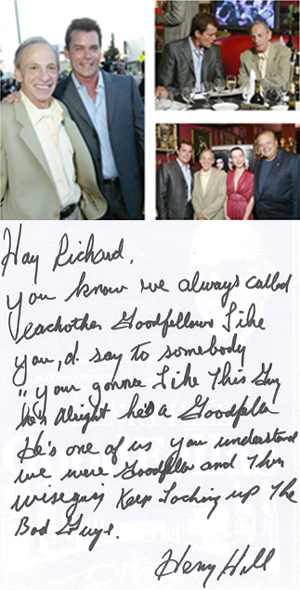 Hay Richard,
you know we always called
eachother Goodfellows Like
you,d. say to somebody
"your gonna Like This Guy
he's Alright he's a Goodfella
He's one of us you understand
we were Goodfellas and Then
wiseguys Keep Locking up The
Bad Guys.
Henry Hill